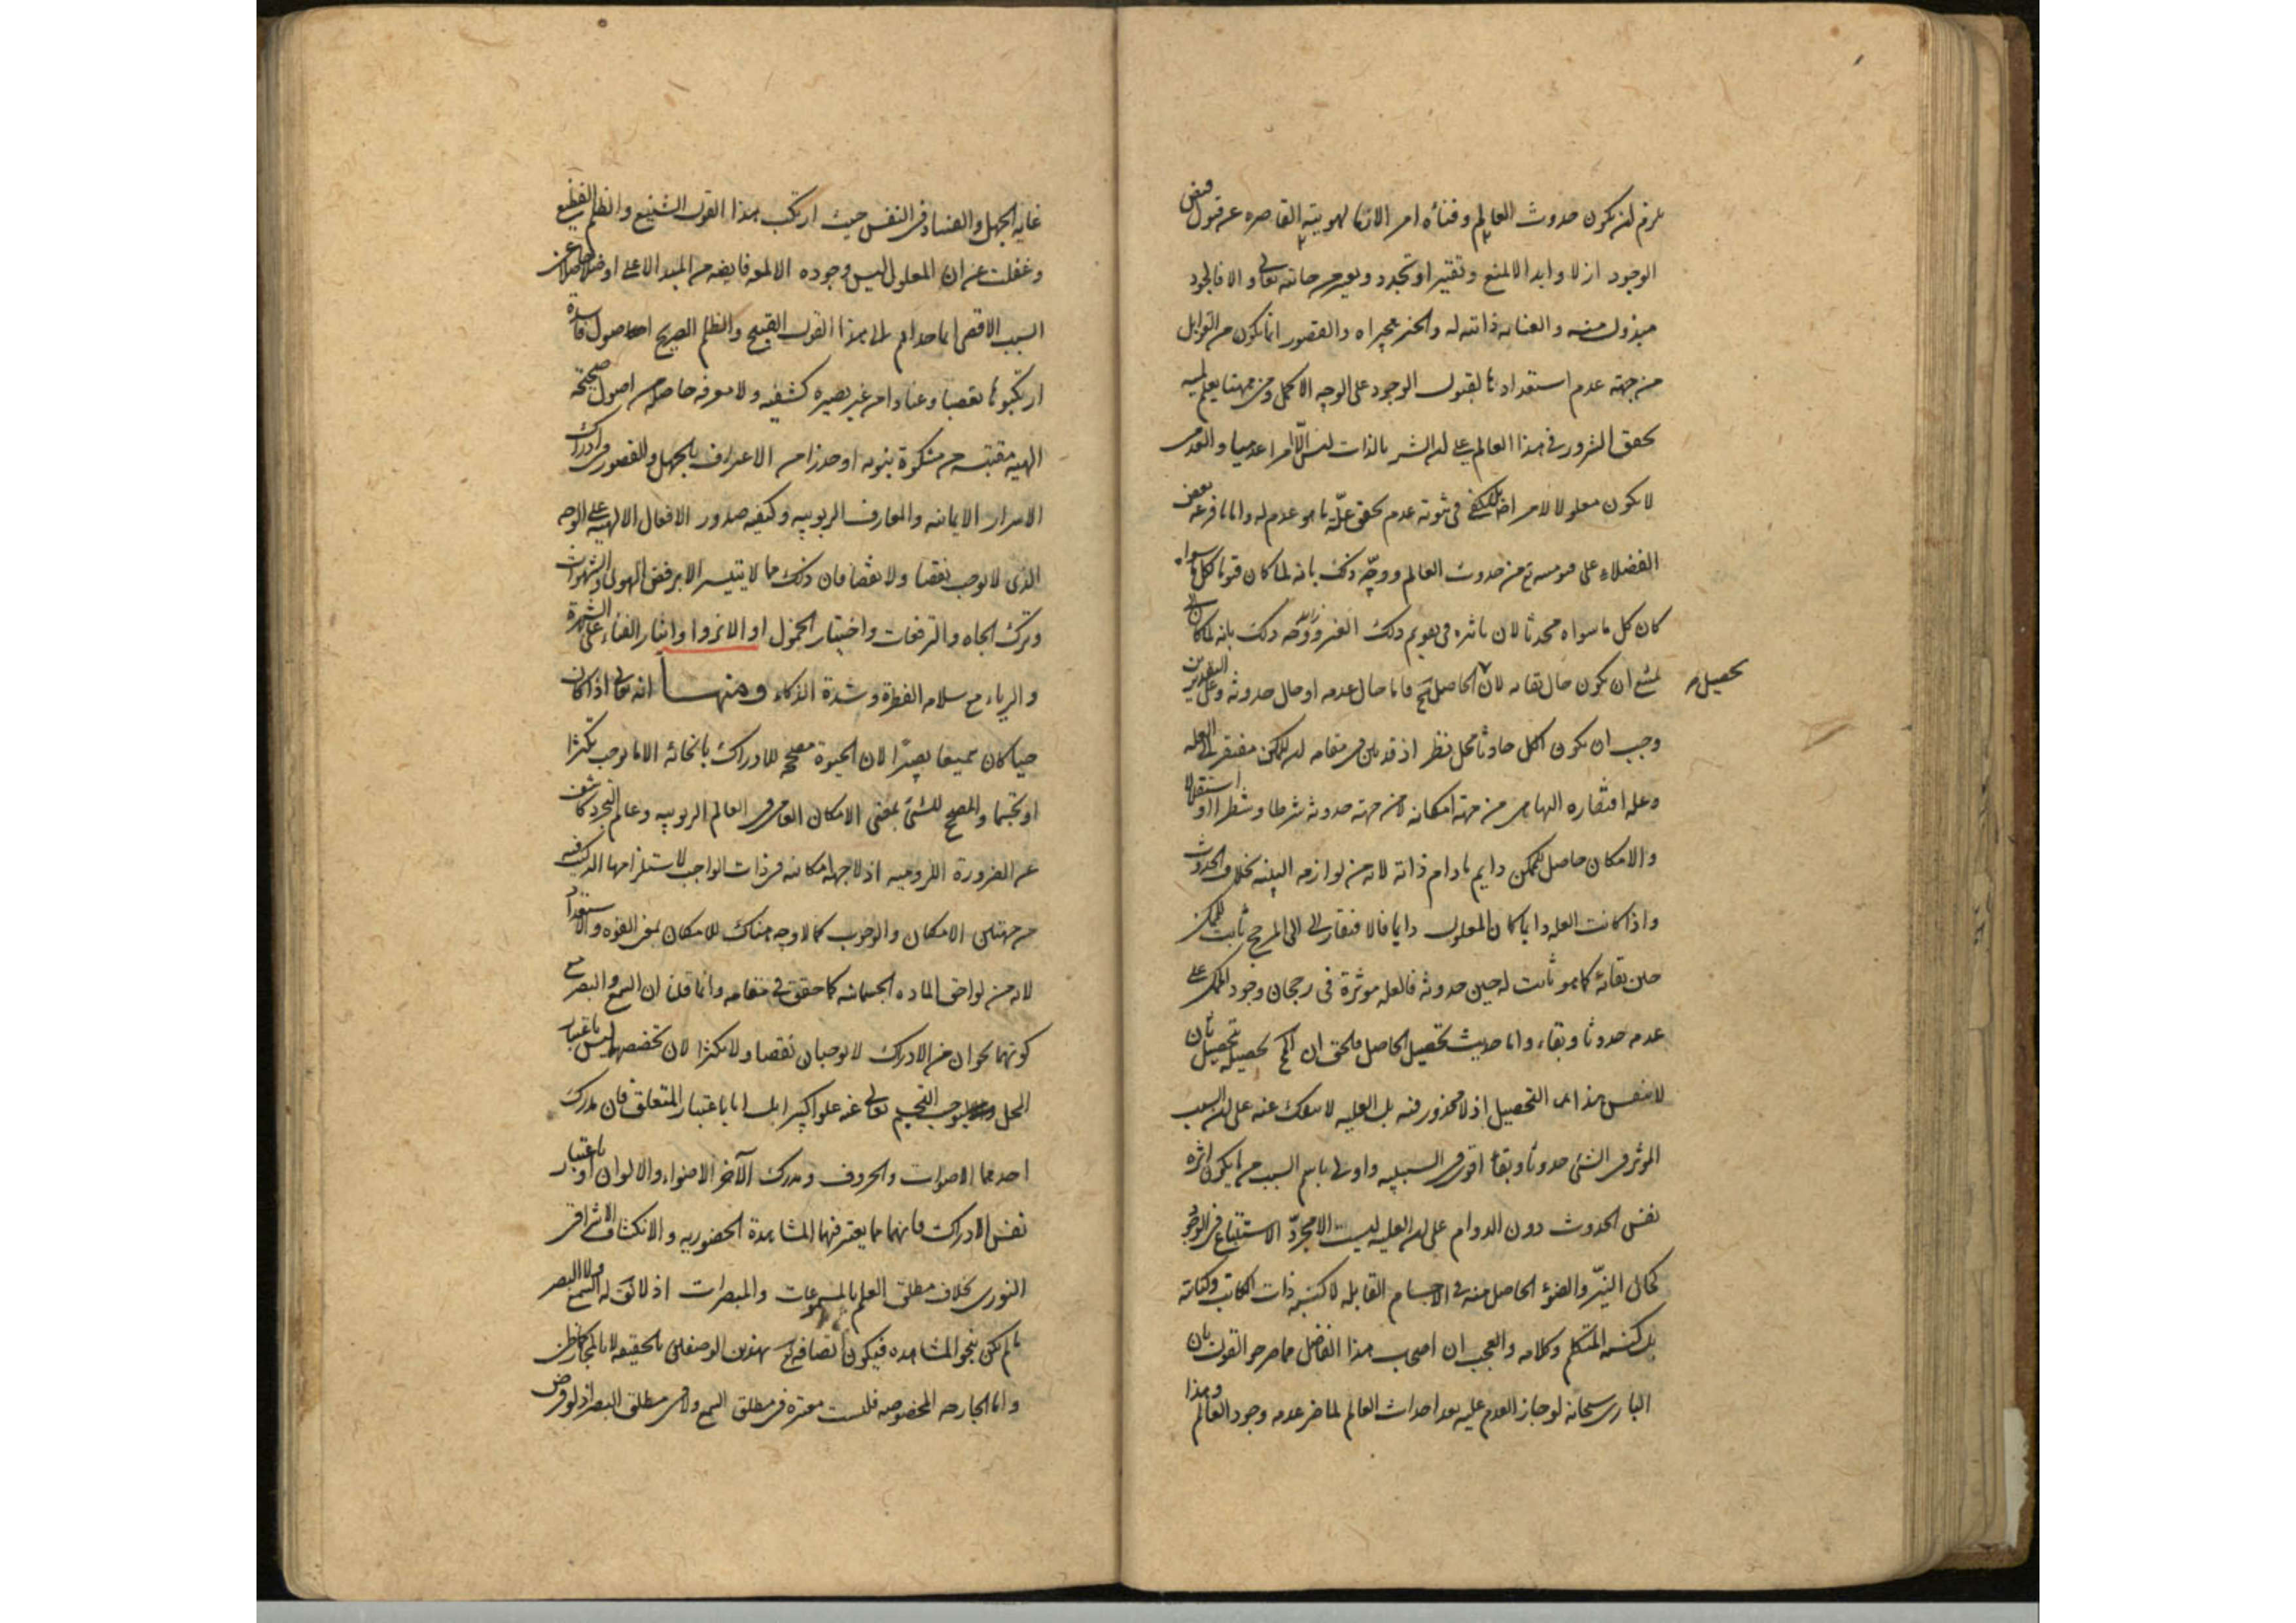 يلزم ان يكون حدوث العالم وفناؤه امرا لازما لهويته القاصرة عن قبول فيض
الوجود ازلا وابدا لا لمنع وتقتير او تجدد وتغير من جانبه تعالى والا فالجود
مبذول منه والعناية ذاتية له والخير مجراه والقصور انما يكون من القوابل
من جهة عدم استعدادها لقبول الوجود على الوجه الاكمل ومن ههنا يعلم لمية
تحقق الشرور في هذا العالم على ان الشر بالذات ليس الا امرا عدميا والعدمي
لا يكون معلولا لامر اصلا بل يكفي في ثبوته عدم تحقق علة ما هو عدم له واما ما فرعه بعض
الفضلاء على من حدوث العالم ووجه ذلك بانه لما كان كل ما سواه
كان كل ما سواه محدثا لان تاثيره في تقويم ذلك الغير ووجه ذلك بانه لما كان
يمتنع ان يكون حال بقائه لان الحاصل مح فاما حال عدمه او حال حدوثه وعلى التقديرين
تحصيل
وجب ان يكون الكل حادثا محل نظر اذ قد بين في مقامه ان الممكن مفتقر الى العلة
وعلة افتقاره اليها هي من جهة امكانه لا من جهة حدوثه شرطا وشطرا او استقلالا
والامكان حاصل للممكن دايم ما دام ذاته لانه من لوازمه البينة بخلاف الحدوث
واذا كانت العلة دايما كان المعلول دايما فالافتقار الى المرجح ثابت للممكن
حين بقائه كما هو ثابت له حين حدوثه فالعلة موثرة في رجحان وجود الممكن على
عدمه حدوثا وبقاء واما حديث تحصيل الحاصل فالحق ان المح تحصيله بتحصيل ثان
لا بنفس هذا التحصيل اذ لا محذور فيه بل العلية لا تنفك عنه على ان السبب
الموثر في الشئ حدوثا وبقاء اقوى في السببية واولى باسم السبب مما يكون اثره
نفس الحدوث دون الدوام على ان العلية ليست الا مجرد الاستتباع في الوجود
كحال النير والضوء الحاصل منه في الاجسام القابلة لا كنسبة ذات الكاتب وكتابته
بل كنسبة المتكلم وكلامه والعجب ان اصحاب هذا الفاضل مما صرحوا القول بان
الباري سبحانه لو جاز العدم عليه بعد احداث العالم لما ضر عدمه وجود العالم وهذا
غاية الجهل والفساد في النفس حيث ارتكب هذا القول الشنيع والظلم الفظيع
وغفلت عن ان المعلول ليس وجوده الا لمعة فايضة من المبدا الاعلى
السبب الاقصى انما حداهم الى هذا القول القبيح والظلم الصريح اصول فاسدة
ارتكبوها تعصبا وعنادا من غير بصيرة كشفية ولا معرفة حاصلة من اصول صحيحة
الهية مقتبسة من مشكوة نبوية او حذرا من الاعتراف بالجهل والقصور في ادراك
الاسرار الايمانية والمعارف الربوبية وكيفية صدور الافعال الالهية على الوجه
الذي لا يوجب نقصا ولا نقضا فان ذلك مما لا يتيسر الا برفض الهوى والشهوات
وترك الجاه والترفعات واختيار الخمول او الانزوا وايثار الفناء على الشهرة
والرياء مع سلامة الفطرة وشدة الذكاء ومنها انه تعالى اذا كان
حيا كان سميعا بصيرا لان الحيوة مصححة للادراك بانحائه الا ما يوجب تكثرا
او تجسما والمصحح للشئ بمعنى الامكان العام في العالم الربوبية وعالم التجرد كاشف
عن الضرورة اللزومية اذ لا جهة امكانية في ذات الواجب لاستلزامها التركيب فيه
من جهتي الامكان والوجوب كما لا وجه هناك للامكان بمعنى القوة والاستعداد
لانه من لواحق المادة الجسمانية كما حقق في مقامه وانما قلنا ان السمع والبصر مع
كونهما نحوان من الادراك لا يوجبان نقصا ولا تكثرا لان تخصصهما ليس باعتبار
المحل ليوجب التجسم تعالى عنه علوا كبيرا بل اما باعتبار المتعلق فان مدرك
احدهما الاصوات والحروف ومدرك الآخر الاضواء والالوان او باعتبار
نفس الادراك فانهما مما يعتبر فيهما المشاهدة الحضورية والانكشاف الاشراقي
النوري بخلاف مطلق العلم بالمسموعات والمبصرات اذ لا يق له السمع ولا البصر
ما لم يكن بنحو المشاهدة فيكون اتصافه تع بهذين الوصفين بالحقيقة لا بالمجاز كما ظن
واما الجارحة المخصوصة فليست معتبرة في مطلق السمع ولا في مطلق البصر اذ لو فرض